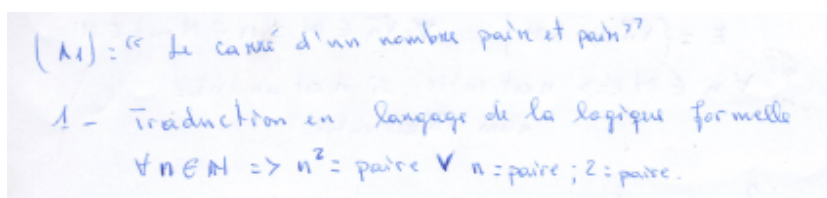 (A1) : “ Le carré d'un nombre pain et pain ”
1 - Traduction en langage de la logique formelle
∀ n ∈ N => n² = paire ∨ n = paire ; 2 = paire.